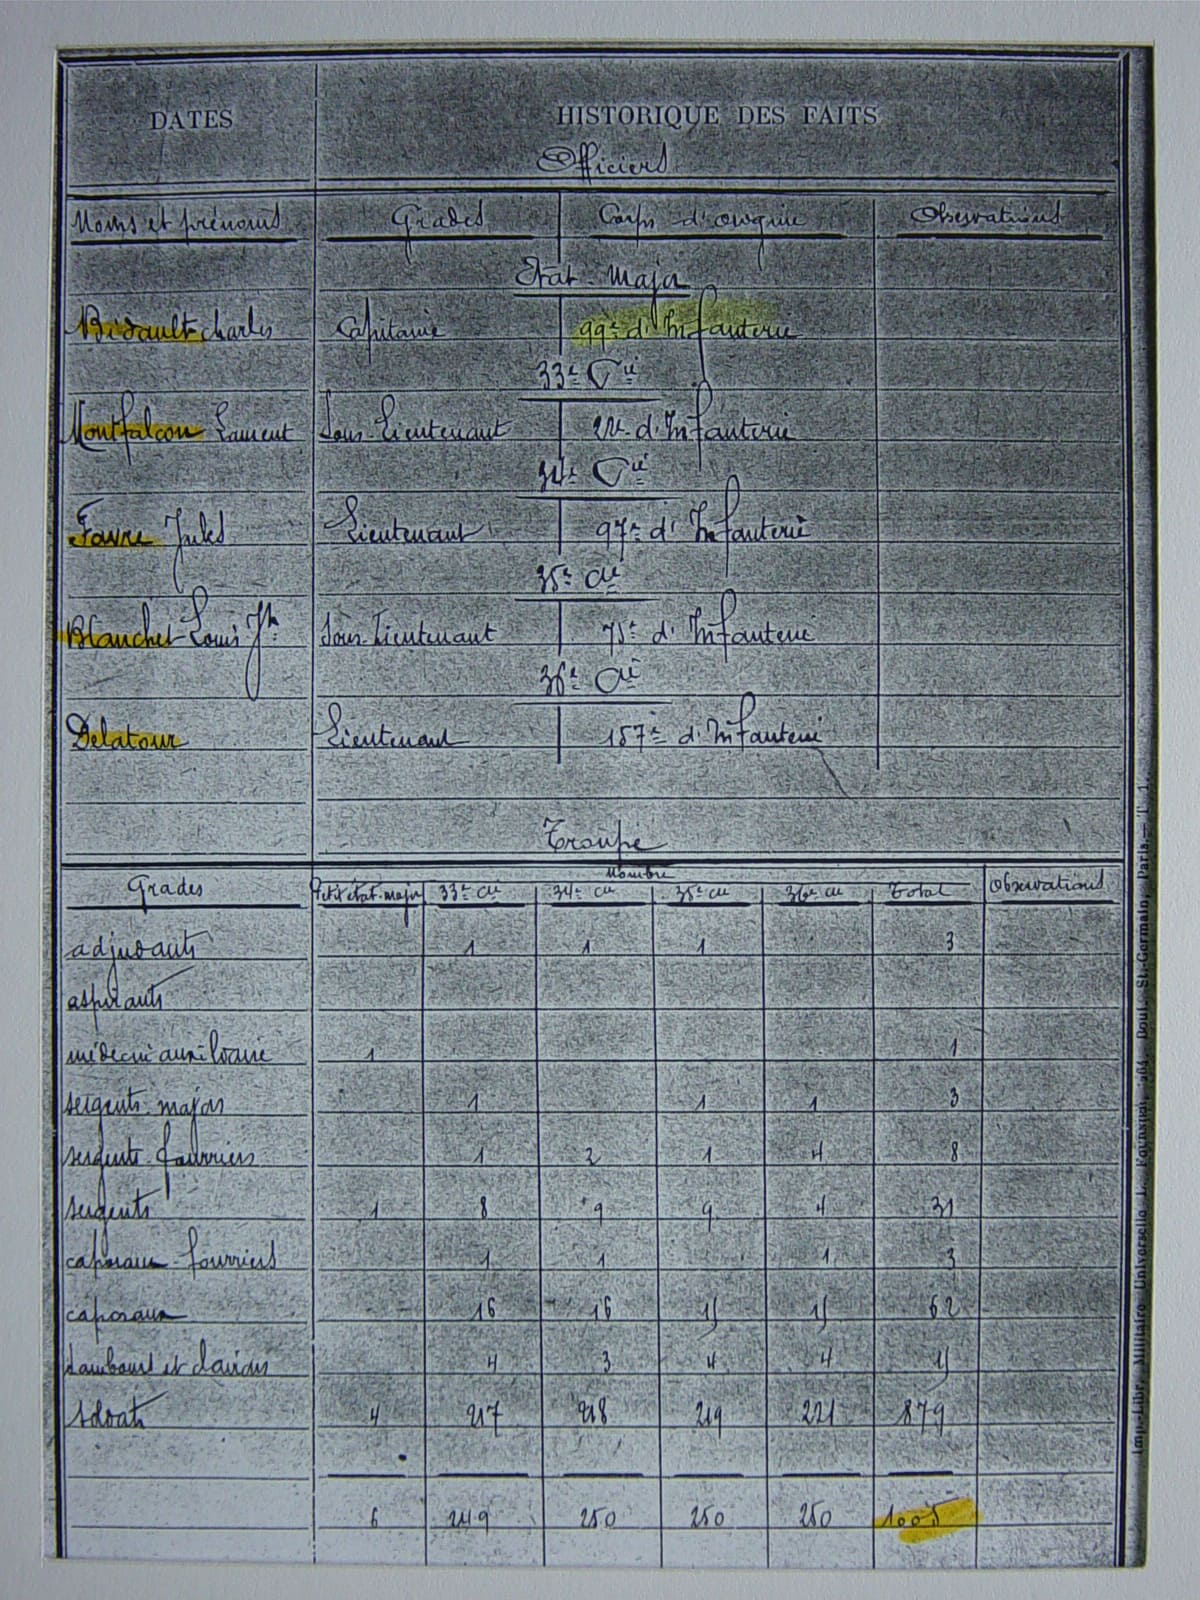 DATES HISTORIQUE DES FAITS
Officiers
Noms et prénoms Grades Corps d'origine Observations
Etat-Major
Bidault Charles Capitaine 99e d'Infanterie
33e Cie
Montfalcon Laurent Sous-Lieutenant 22e d'Infanterie
34e Cie
Favre Jules Lieutenant 97e d'Infanterie
35e Cie
Blanchet Louis Jh Sous-Lieutenant 75e d'Infanterie
36e Cie
Delatour Lieutenant 157e d'Infanterie
Troupe
Nombre
Grades Petit état-major 33e Cie 34e Cie 35e Cie 36e Cie Total Observations
adjudants 1 1 1 3
aspirants
médecin auxiliaire 1 1
sergents-majors 1 1 1 3
sergents-fourriers 1 2 1 4 8
sergents 1 8 9 9 4 31
caporaux-fourriers 1 1 1 3
caporaux 16 16 15 15 62
tambours et clairons 4 3 4 4 15
soldats 4 217 218 219 221 879
6 249 250 250 250 1005
Imp.-Libr. Militaire Universelle L. Fournier, 264, Boul. St-Germain, Paris. — T. 1.